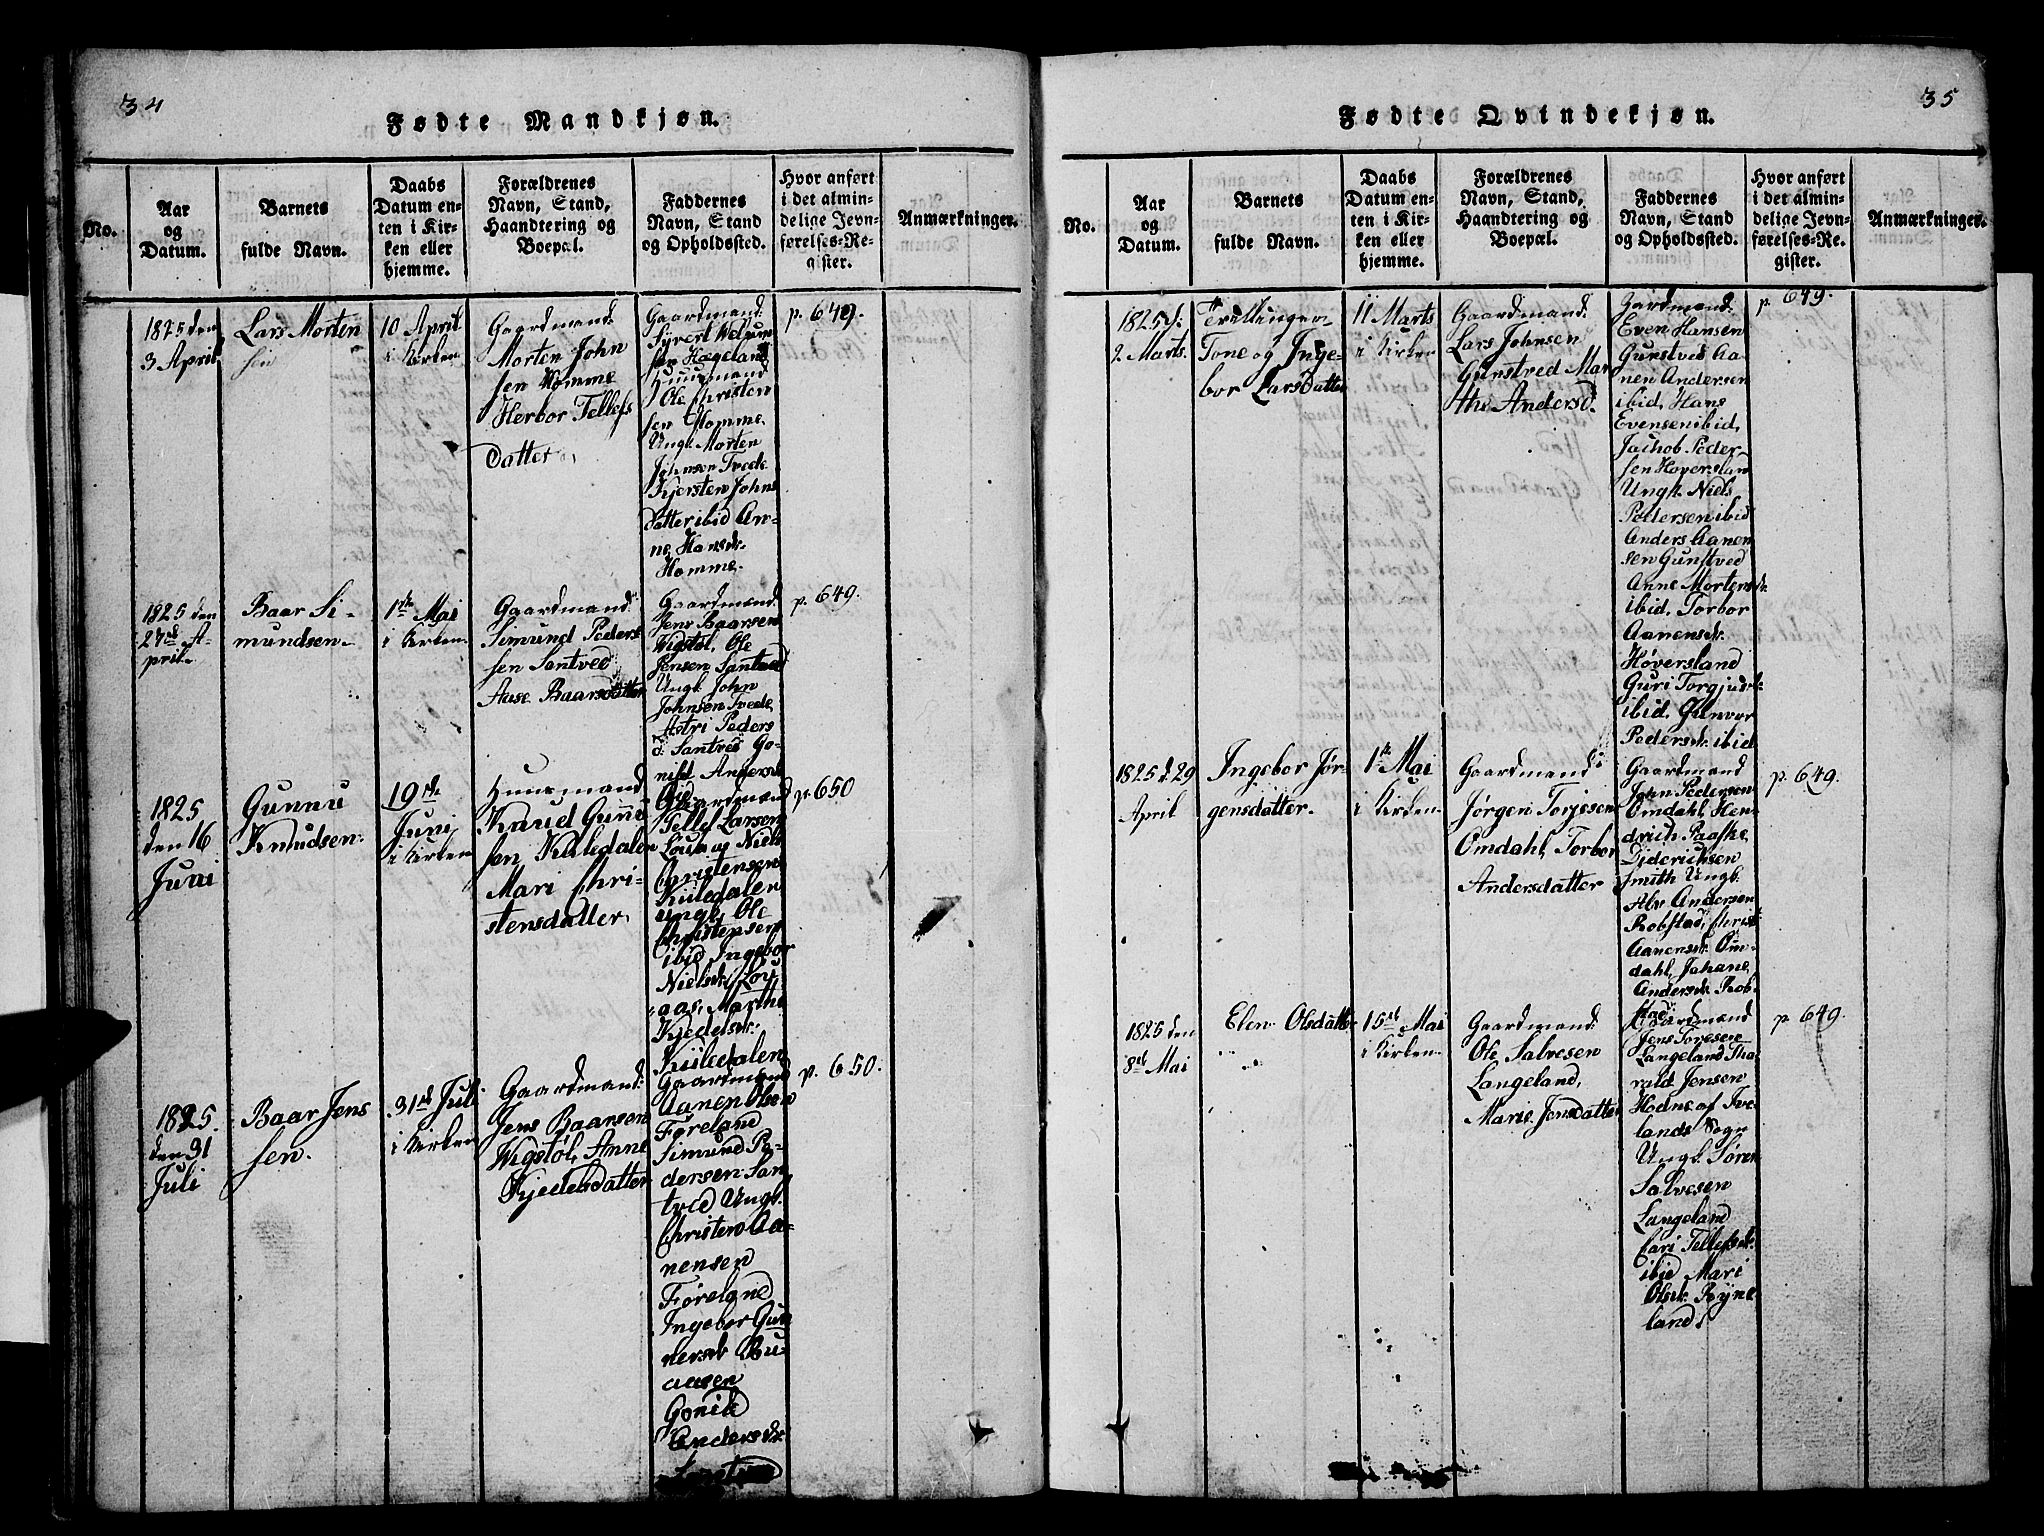 34
Fødte Mandkjøn.
No.
Aar
og
Datum.
Barnets
fulde Navn.
Daabs
Datum en-
ten i Kir-
ken eller
hjemme.
Forældrenes
Navn, Stand,
Haandtering og
Boepæl.
Faddernes
Navn, Stand
og Opholdssted.
Hvor anført
i det almin-
delige Jevn-
førelses-Re-
gister.
Anmærkninger.
1825 den
3 April
Lars Morten
sen
10 April
i Kirken
Gaardmand
Morten John
sen Homme
Herbor Tellefs
Datter
Gaardmand
Syvert
sen Hægeland
Huusmand
Ole Christen
sen Homme
Ungk. Morten
Johnsen Tvede
Kjersten Johns
datter ibid An-
ne Hansdr.
Homme.
p. 649.
1825 den
27de A-
pril
Baar Si-
mundsen
1ste Mai
i Kirken
Gaardmand
Simund Peder
sen Santved
Aase Baarsdatter
Gaardmand
Jens Baarsen
Wigstøl, Ole
Jensen Santved
Ungk. John
Johnsen Tvede
Astri Peders
d. Santved Go-
nild Andersd
p. 649.
1825
den 16
Juni
Gunnu
Knudsen
19de
Juni
i Kirken
Huusmand
Knud Gunnu
sen Kiiledalen
Mari Chri-
stensdatter
Gaardmand
Tellef Larsen
Niels
Christensen
Kiiledalen
Ungk. Ole
Christensen
ibid Ingebor
Nielsdr.
aas, Marthe
Kjedelsdr.
Kiiledalen
p. 650
1825.
den 31
Juli
Baar Jens
sen.
31te Juli
i Kirken
Gaardmand
Jens Baarsen
Wigstøl, Anne
Kjedelsdatter
Gaardmand
Aanen Olsen
Føreland
Simund Pe-
dersen San
tved Ungk.
Christen Aa-
nensen
Føreland
Ingebor Gun
nersd. Ru-
aasen
Gonild
Andersdr.
p. 650.
35
Fødte Qvindekjøn.
No.
Aar
og
Datum.
Barnets
fulde Navn.
Daabs
Datum en-
ten i Kir-
ken eller
hjemme.
Forældrenes
Navn, Stand,
Haandtering og
Boepæl.
Faddernes
Navn, Stand
og Opholdssted.
Hvor anført
i det almin-
delige Jevn-
førelses-Re-
gister.
Anmærkninger.
1825 d.
2. Marts.
Tvillinger
Tone og Inge-
bor Larsdatter
11 Marts
i Kirken
Gaardmand
Lars Johnsen
Gunstved Mar
the Andersd.
Gaardmand
Even Hansen
Gunstved Aa-
nen Andersen
ibid, Hans
Evensen ibid,
Jachob Peder-
sen Høversland
Ungk. Niels
Pedersen ibid
Anders Aanen
sen Gunstved
Anne Mortensdr.
ibid, Torbor
Aanensdr.
Høversland
Guri Torgjusdr.
ibid, Gunvor
Pedersdr. ibid
p. 649.
1825 d. 29
April
Ingebor Jør-
gensdatter.
1ste Mai
i Kirken
Gaardmand
Jørgen Torjesen
Omdahl, Torbor
Andersdatter
Gaardmand
John Pedersen
Omdahl, Hen-
drich Paaske
Diderichsen
Smith Ungk.
Alv Andersen
Robstad, Christ
Aanensdr. Om-
dahl, Johane
Andersdr. Rob-
stad
p. 649.
1825 den
8de Mai
Elen Olsdatter
15de Mai
i Kirken
Gaardmand
Ole Salvesen
Langeland,
Maris Jensdatter
Gaardmand
Jens Toresen
Langeland Tha
rald Jensen
Hodne af Ive-
lands Sogn
Ungk. Søren
Salvesen
Langeland
Cari Tellefsdr.
ibid Mari
Olsdr. Røjne
land.
p. 649.